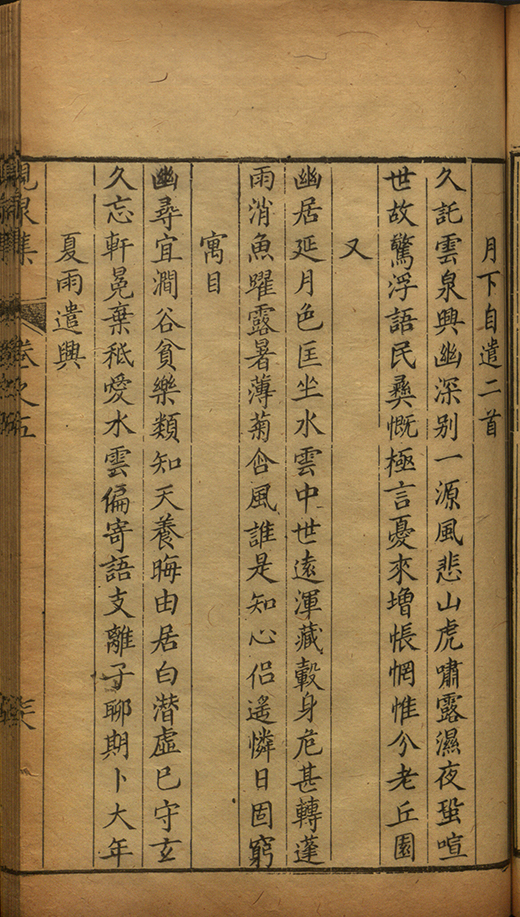 月下自遣二首
久託雲泉興幽深别一源風悲山虎嘯露濕夜蛩喧
世故驚浮語民彝慨極言憂來增悵惘惟兮老丘園
又
幽居延月色匡坐水雲中世遠渾藏轂身危甚轉蓬
雨消魚躍露暑薄菊含風誰是知心侣遙憐日固窮
寓目
幽尋宜澗谷貧樂類知天養晦由居白潛虛已守玄
久忘軒冕棄秪愛水雲偏寄語支離子聊期卜大年
夏雨遣興
集 卷之五